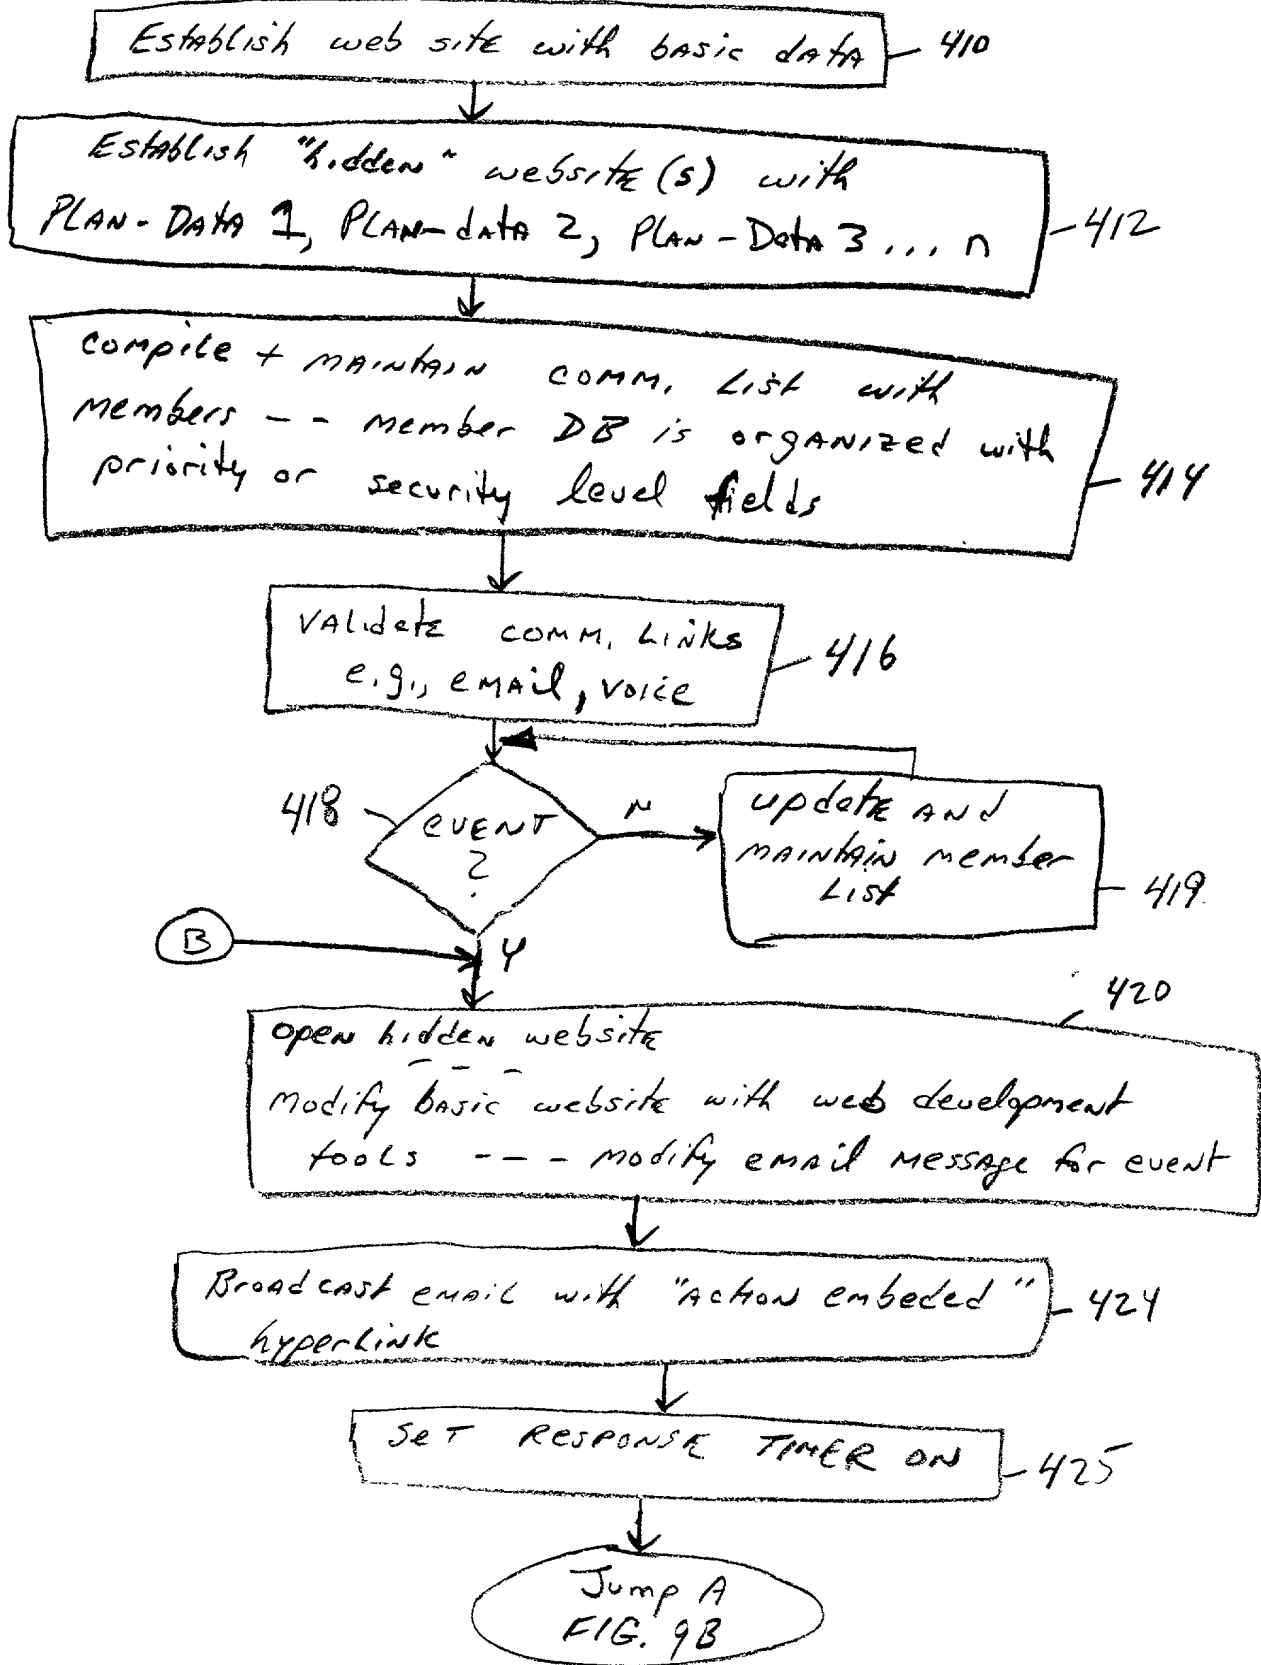 Establish web site with basic data 410
Establish "hidden" website(s) with
PLAN-DATA 1, PLAN-dATA 2, PLAN-DATA 3 ... n 412
compile + MAINTAIN comm. List with
members -- member DB is organized with
priority or security level fields 414
VALidate comm. LINKs
e.g., email, voice 416
418 EVENT
?
N
update and
MAINTAIN member
List 419
B
Y
420
open hidden website
---
Modify basic website with web development
tools --- modify email message for event
Broadcast email with "Action embeded"
hyperlink 424
SET RESPONSE TIMER ON 425
Jump A
FIG. 9B